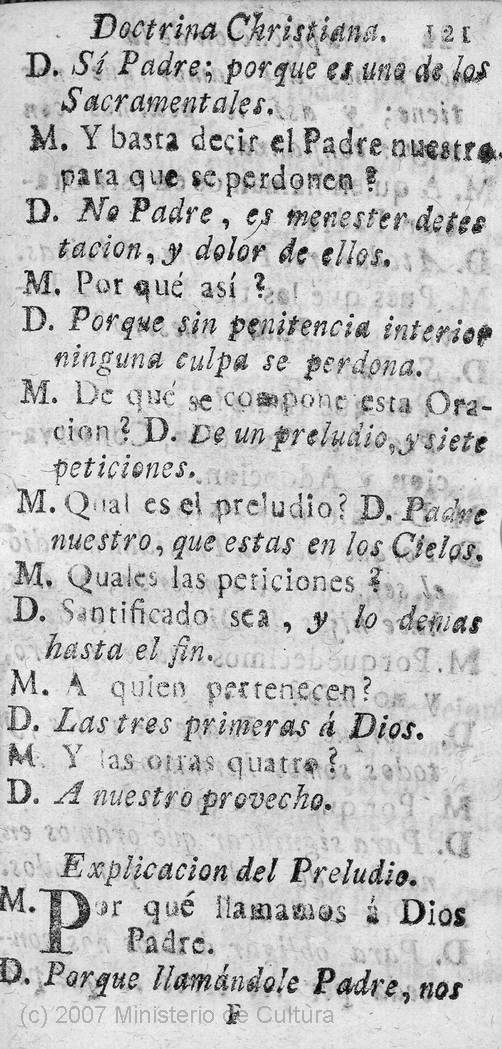 Doctrina Christiana. 121
D. Sí Padre; porque es uno de los
Sacramentales.
M. Y basta decir el Padre nuestro,
para que se perdonen?
D. No Padre, es menester detes
tacion, y dolor de ellos.
M. Por qué así?
D. Porque sin penitencia interior
ninguna culpa se perdona.
M. De qué se compone esta Ora-
cion? D. De un preludio, y siete
peticiones.
M. Qual es el preludio? D. Padre
nuestro, que estas en los Cielos.
M. Quales las peticiones?
D. Santificado sea, y lo demas
hasta el fin.
M. A quien pertenecen?
D. Las tres primeras á Dios.
M. Y las otras quatro?
D. A nuestro provecho.
Explicacion del Preludio.
M. Por qué llamamos á Dios
Padre.
D. Porque llamándole Padre, nos
F
(c) 2007 Ministerio de Cultura